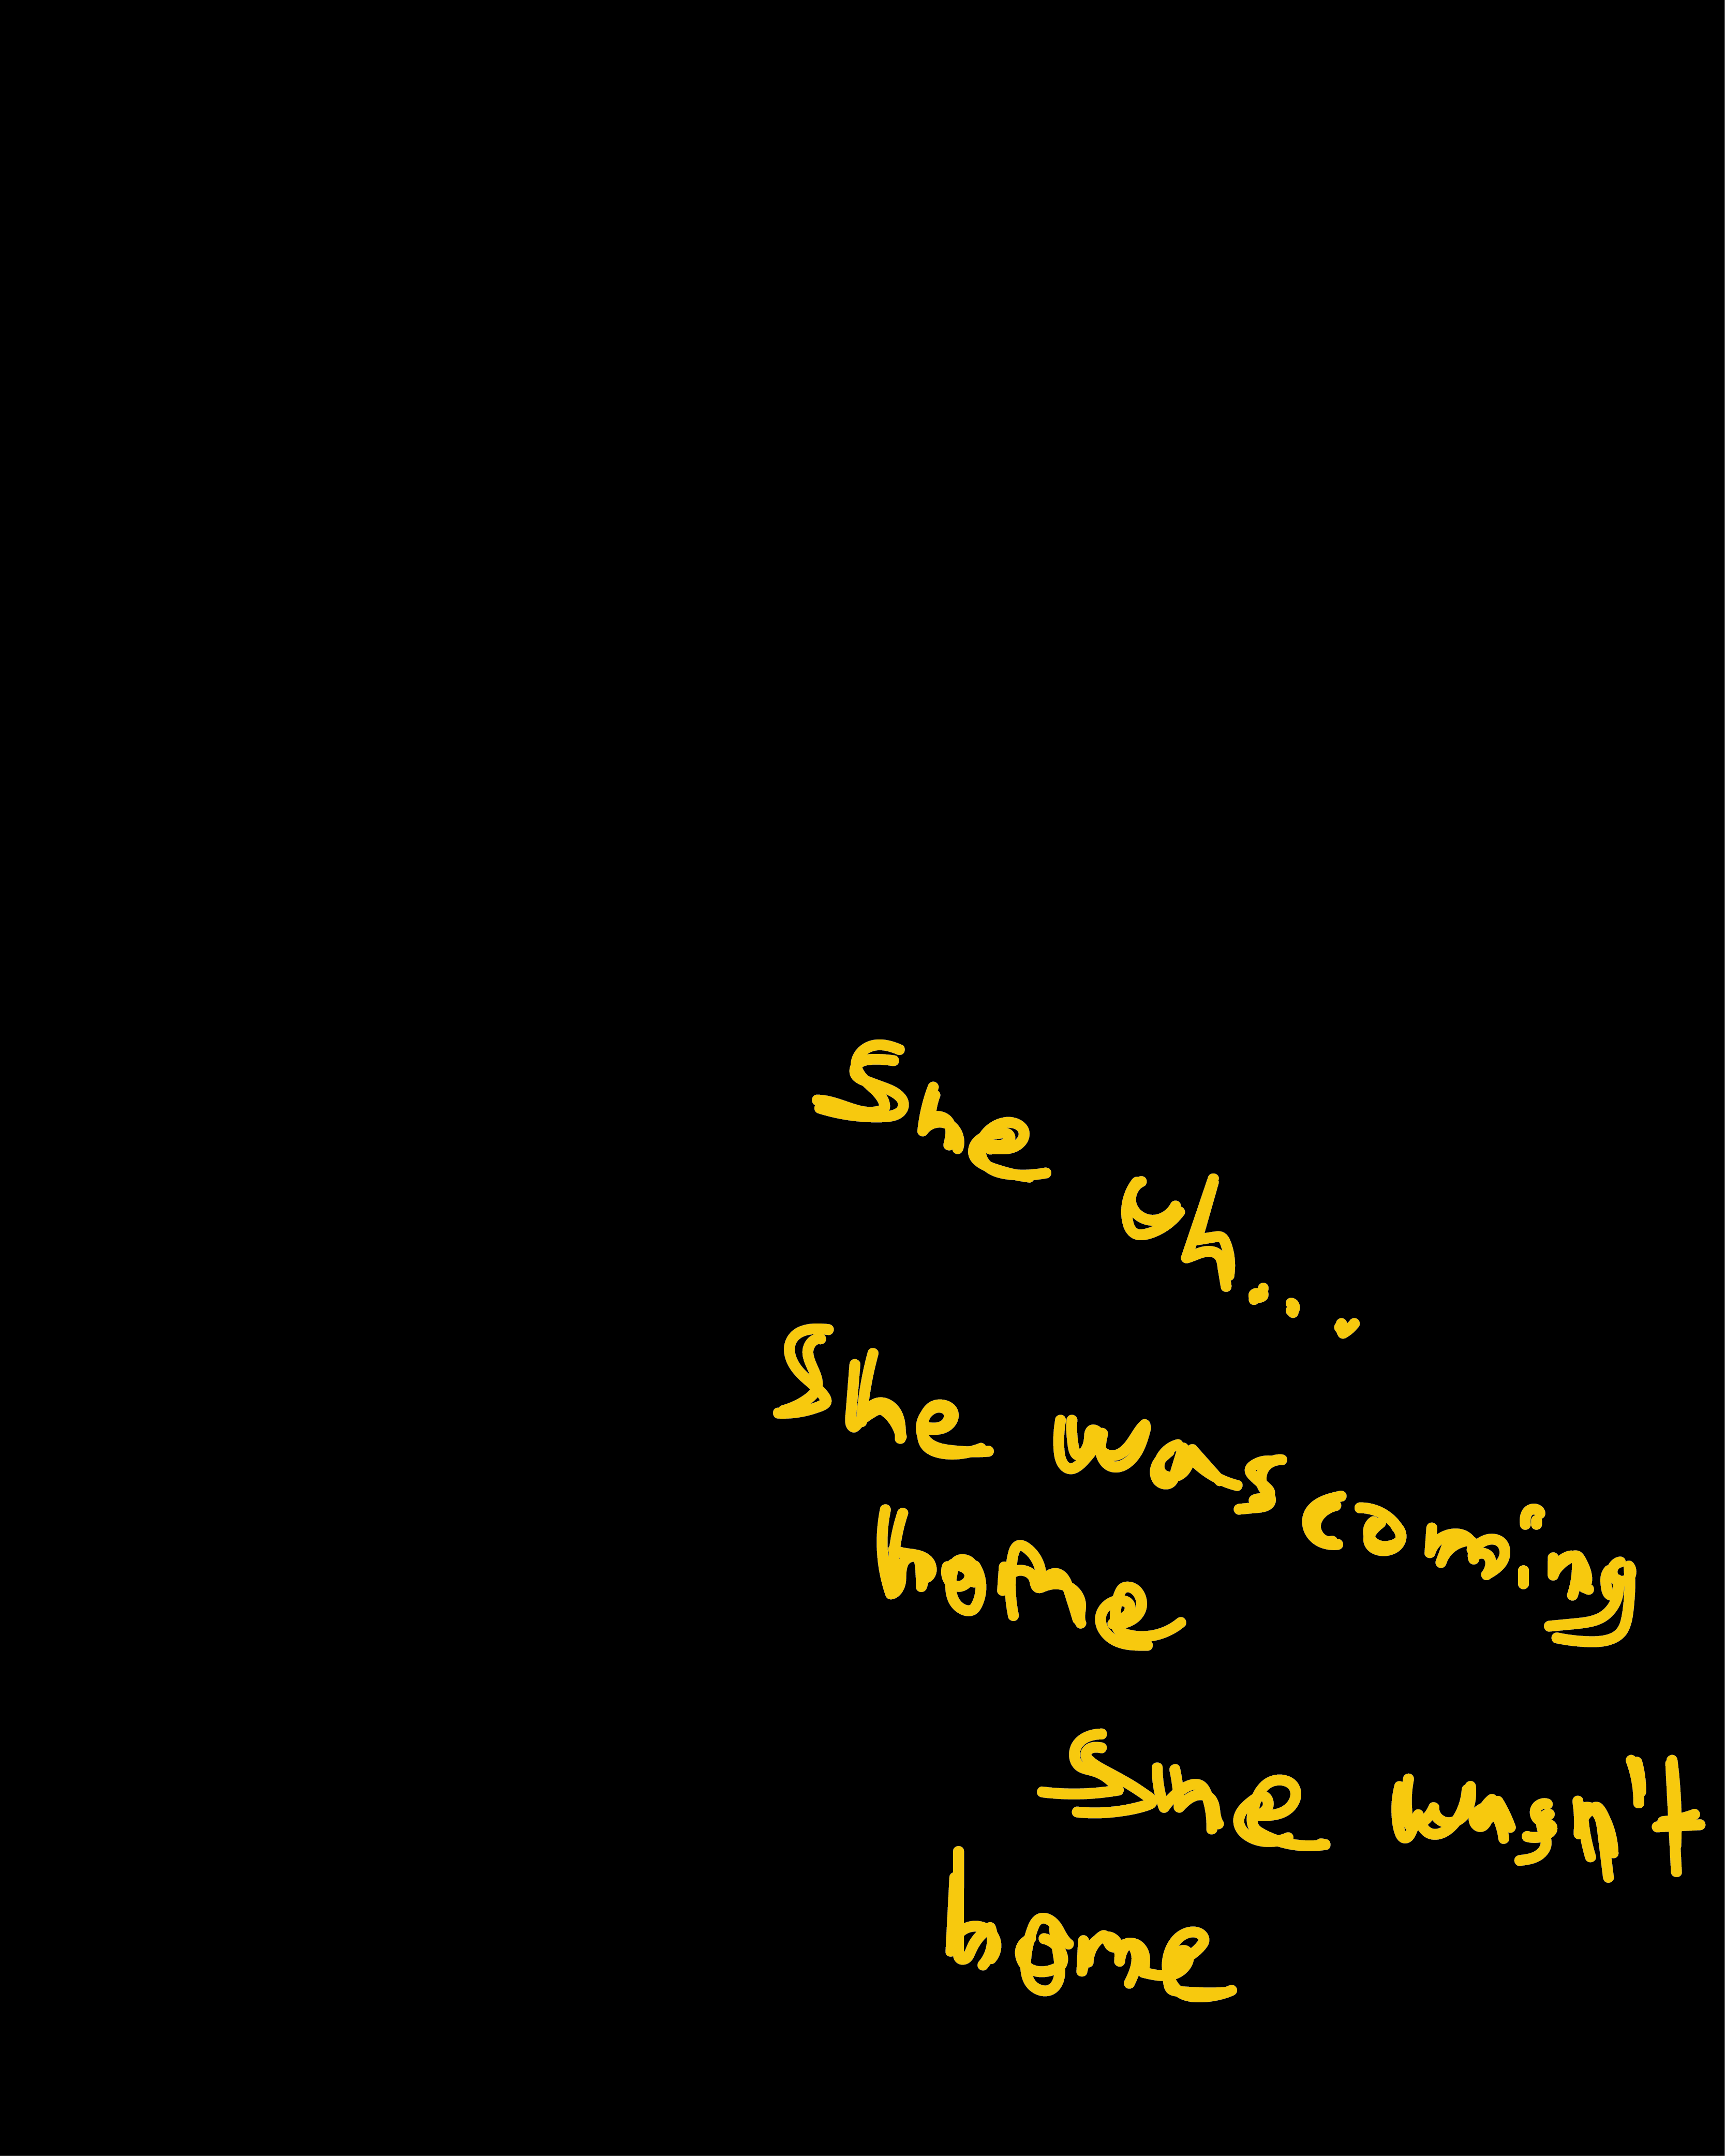 She uh...
She was coming
home
She wasn't
home